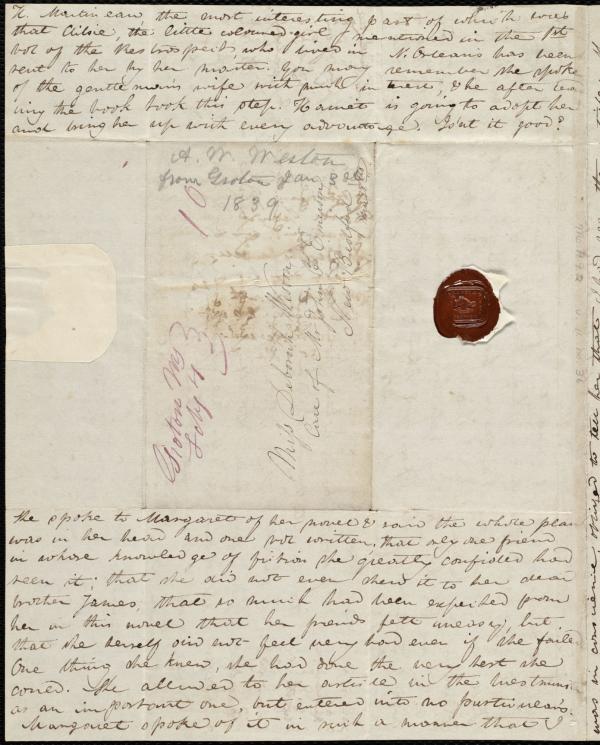 H. Martineau, the most interesting part of which was
that Ailsie, the little coloured girl mentioned in the 1st
vol of the Retrospect, who lived in N. Orleans has been
sent to her by her master. You may remember she spoke
of the gentleman's wife with much in & he after
ing the book took this step. Harriet is going to adopt her
and bring her up with every advantage. Isn't it good?
A. W. Weston
from Groton Jan
1839
10
Groton Ms
Feby 4
Miss Deborah Weston
Care of Mr.
New Bedford
She spoke to Margaret of her novel & said the whole plan
was in her head and one vol written, that only one friend
in whose knowledge of fiction she greatly confided had
seen it; that she did not even shew it to her dear
brother James, that so much had been expected from
her in this novel that her friends felt uneasy, but
that she herself did not feel very bad even if she failed
One thing she knew, she had done the very best she
could. She alluded to her article in the Westmins
as an important one, but entered into no particulars.
Margaret spoke of it in such a manner that I
was in conscience obliged to tell her that I had